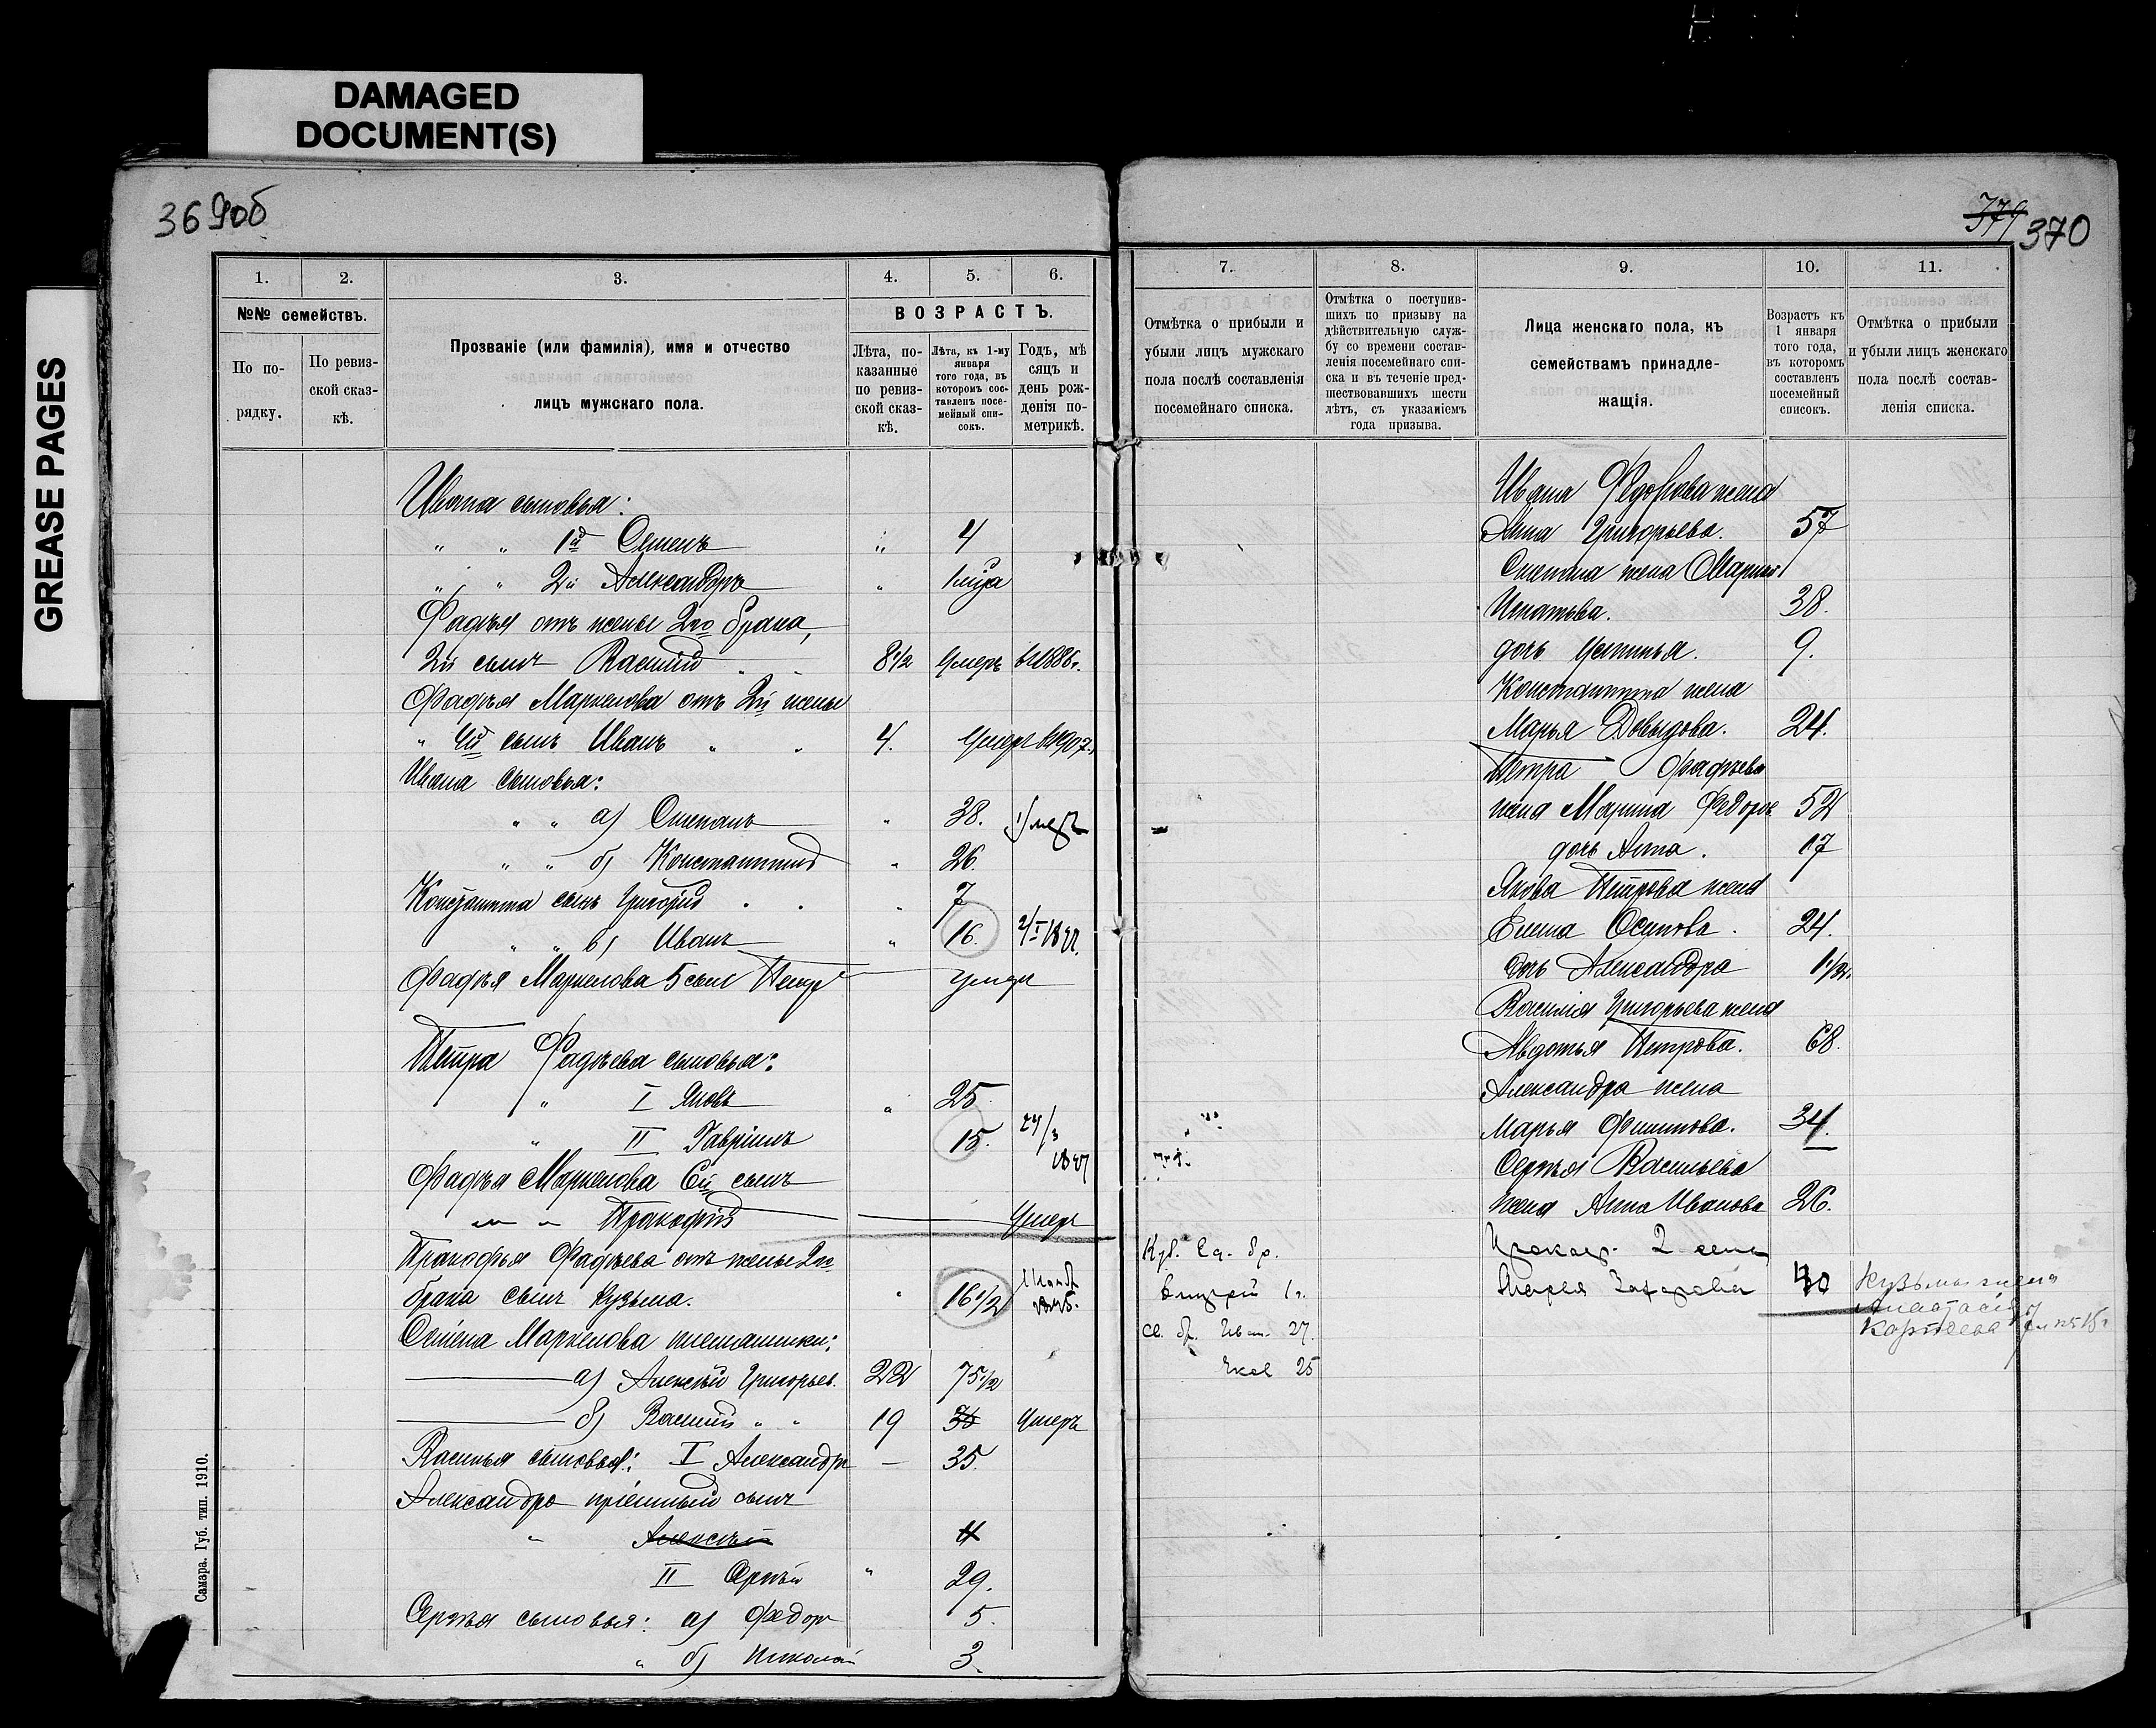 DAMAGED
DOCUMENT(S)
GREASE PAGES
369об
379 370
1. 2. 3. 4. 5. 6.
№№ семействъ.
По по-
рядку.
По ревиз-
ской сказ-
кѣ.
Прозваніе (или фамилія), имя и отчество
лицъ мужскаго пола.
ВОЗРАСТЪ.
Лѣта, по-
казанные
по ревиз-
ской сказ-
кѣ.
Лѣта, къ 1-му
января
того года, въ
которомъ сос-
тавленъ посе-
мейный спи-
сокъ.
Годъ, мѣ
сяцъ и
день рож-
денія по-
метрикѣ.
Ивана сыновья:
" " 1й Семенъ " 4
" " 2й Александръ "
Фадѣя отъ жены 2го брака,
2й сынъ Василій 8 1/2 Умеръ в 1886г.
Фадѣя Маркелова отъ 2й жены
" 4й сынъ Иванъ " " 4. Умеръ в 1907г.
Ивана сыновья:
" " а) Степанъ " 38. Умеръ
" " б) Константинъ " 26.
Константина сынъ Григорій . . " 7
" " в) Иванъ " 16.
Фадѣя Маркелова 5 сынъ Петръ умеръ
Петра Фадѣева сыновья:
" I Яковъ " 25
" II Гавріилъ 15. 24/3
Фадѣя Маркелова 6й сынъ
" " Прокофій Умеръ
Прокофья Фадѣева отъ жены 2го
брака сынъ Кузьма. " 16 1/2
Семена Маркелова племянники:
а) Алексѣй Григорьев. 22 75 1/2
б) Василій " " 19 Умеръ
Василья сыновья: I Александръ — 35.
Александра пріемный сынъ
" Алексѣй 4
II Сергѣй " 29.
Сергѣя сыновья: а) Федоръ 5.
" б) Николай 3.
Самара. Губ. тип. 1910.
7. 8. 9. 10. 11.
Отмѣтка о прибыли и
убыли лицъ мужскаго
пола послѣ составленія
посемейнаго списка.
Отмѣтка о поступив-
шихъ по призыву на
дѣйствительную служ-
бу со времени состав-
ленія посемейнаго спи-
ска и въ теченіе пред-
шествовавшихъ шести
лѣтъ, съ указаніемъ
года призыва.
Лица женскаго пола, къ
семействамъ принадле-
жащія.
Возрастъ къ
1 января
того года,
въ которомъ
составленъ
посемейный
списокъ.
Отмѣтка о прибыли
и убыли лицъ женскаго
пола послѣ состав-
ленія списка.
Ивана Федорова жена
Анна Григорьева. 57
Степана жена Марья
Игнатьева. 38.
дочь Устинья. 9.
Константина жена
Марья Давыдова. 24.
Петра Фадѣева
жена Марина Федоров. 52
дочь Анна. 17
Якова Петрова жена
Елена Осипова. 24.
дочь Александра 1 1/2.
Василія Григорьева жена
Авдотья Петрова. 68.
Александра жена
Марья Филиппова. 34.
Сергѣя Васильева
жена Анна Иванова 26.
Прокоф. 2 жена
Марья Захарова 40
Кузьмы жена
Анастасія
27.
25